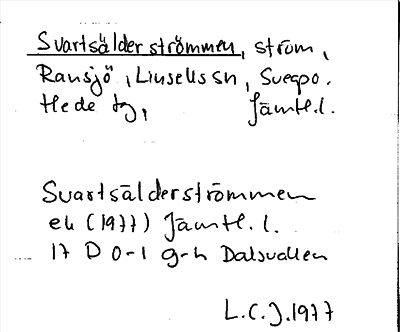 Svartsälderströmmen, ström,
Ransjö, Linsells sn, Svegpo.
Hede tg, Jämtl.l.
Svartsälderströmmen
ek (1977) Jämtl. l.
17 D 0-1 g-h Dalsvallen
L.C.J.1977